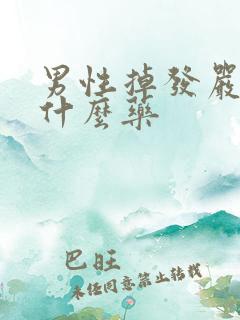 男性掉发嚴
什麼藥
巴旺
未经同意禁止转载